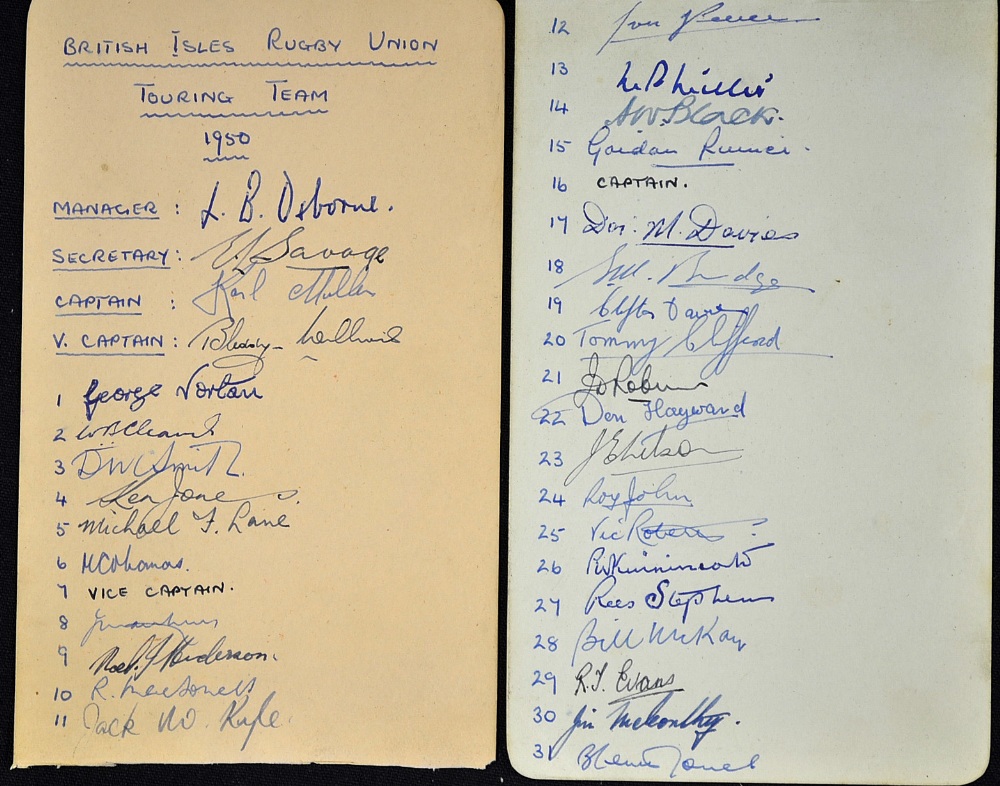 BRITISH ISLES RUGBY UNION
TOURING TEAM
1950
MANAGER : L. B. Osborne.
SECRETARY : E. Savage
CAPTAIN : Karl Mullen
V. CAPTAIN : Bleddyn Williams
1 George Norton
2 W B Cleaver
3 D W C Smith.
4 Ken Jones.
5 Michael F. Lane
6 M C Thomas.
7 VICE CAPTAIN.
8
9 Noel J Henderson.
10 R. Macdonald
11 Jack W. Kyle.
12
13 W R Willis
14 A W. Black.
15 Gordon Rimmer.
16 CAPTAIN.
17 Dai. M. Davies
18 Budge
19 Clifton Davies
20 Tommy Clifford
21 J D Robins
22 Don Hayward
23 J E Nelson
24 Roy John
25 Vic Roberts
26 R W Kinninmonth
27 Rees Stephens
28 Bill McKay
29 R. T. Evans
30 Jim McCarthy.
31 B Lewis Jones